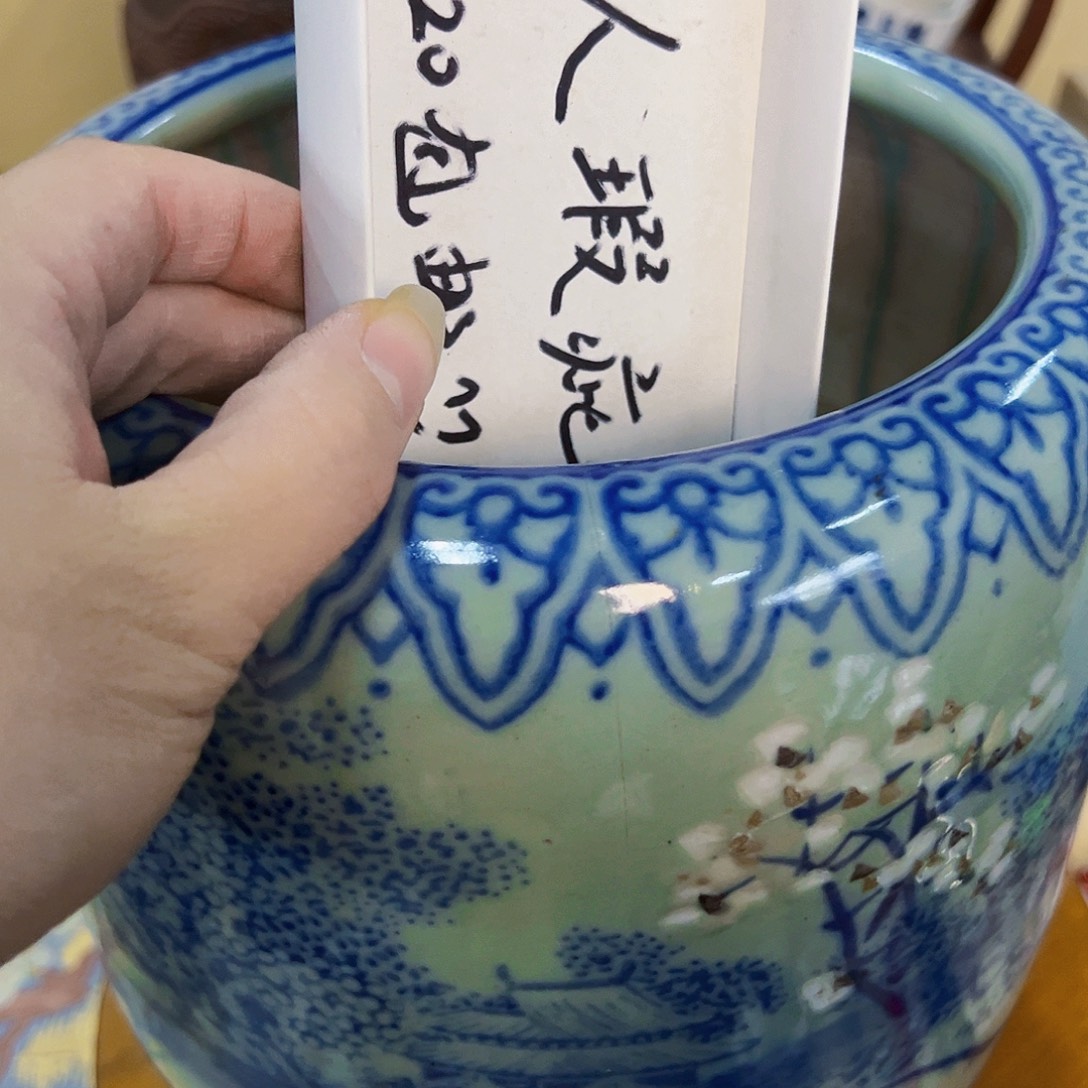 人瑕疵
20包邮